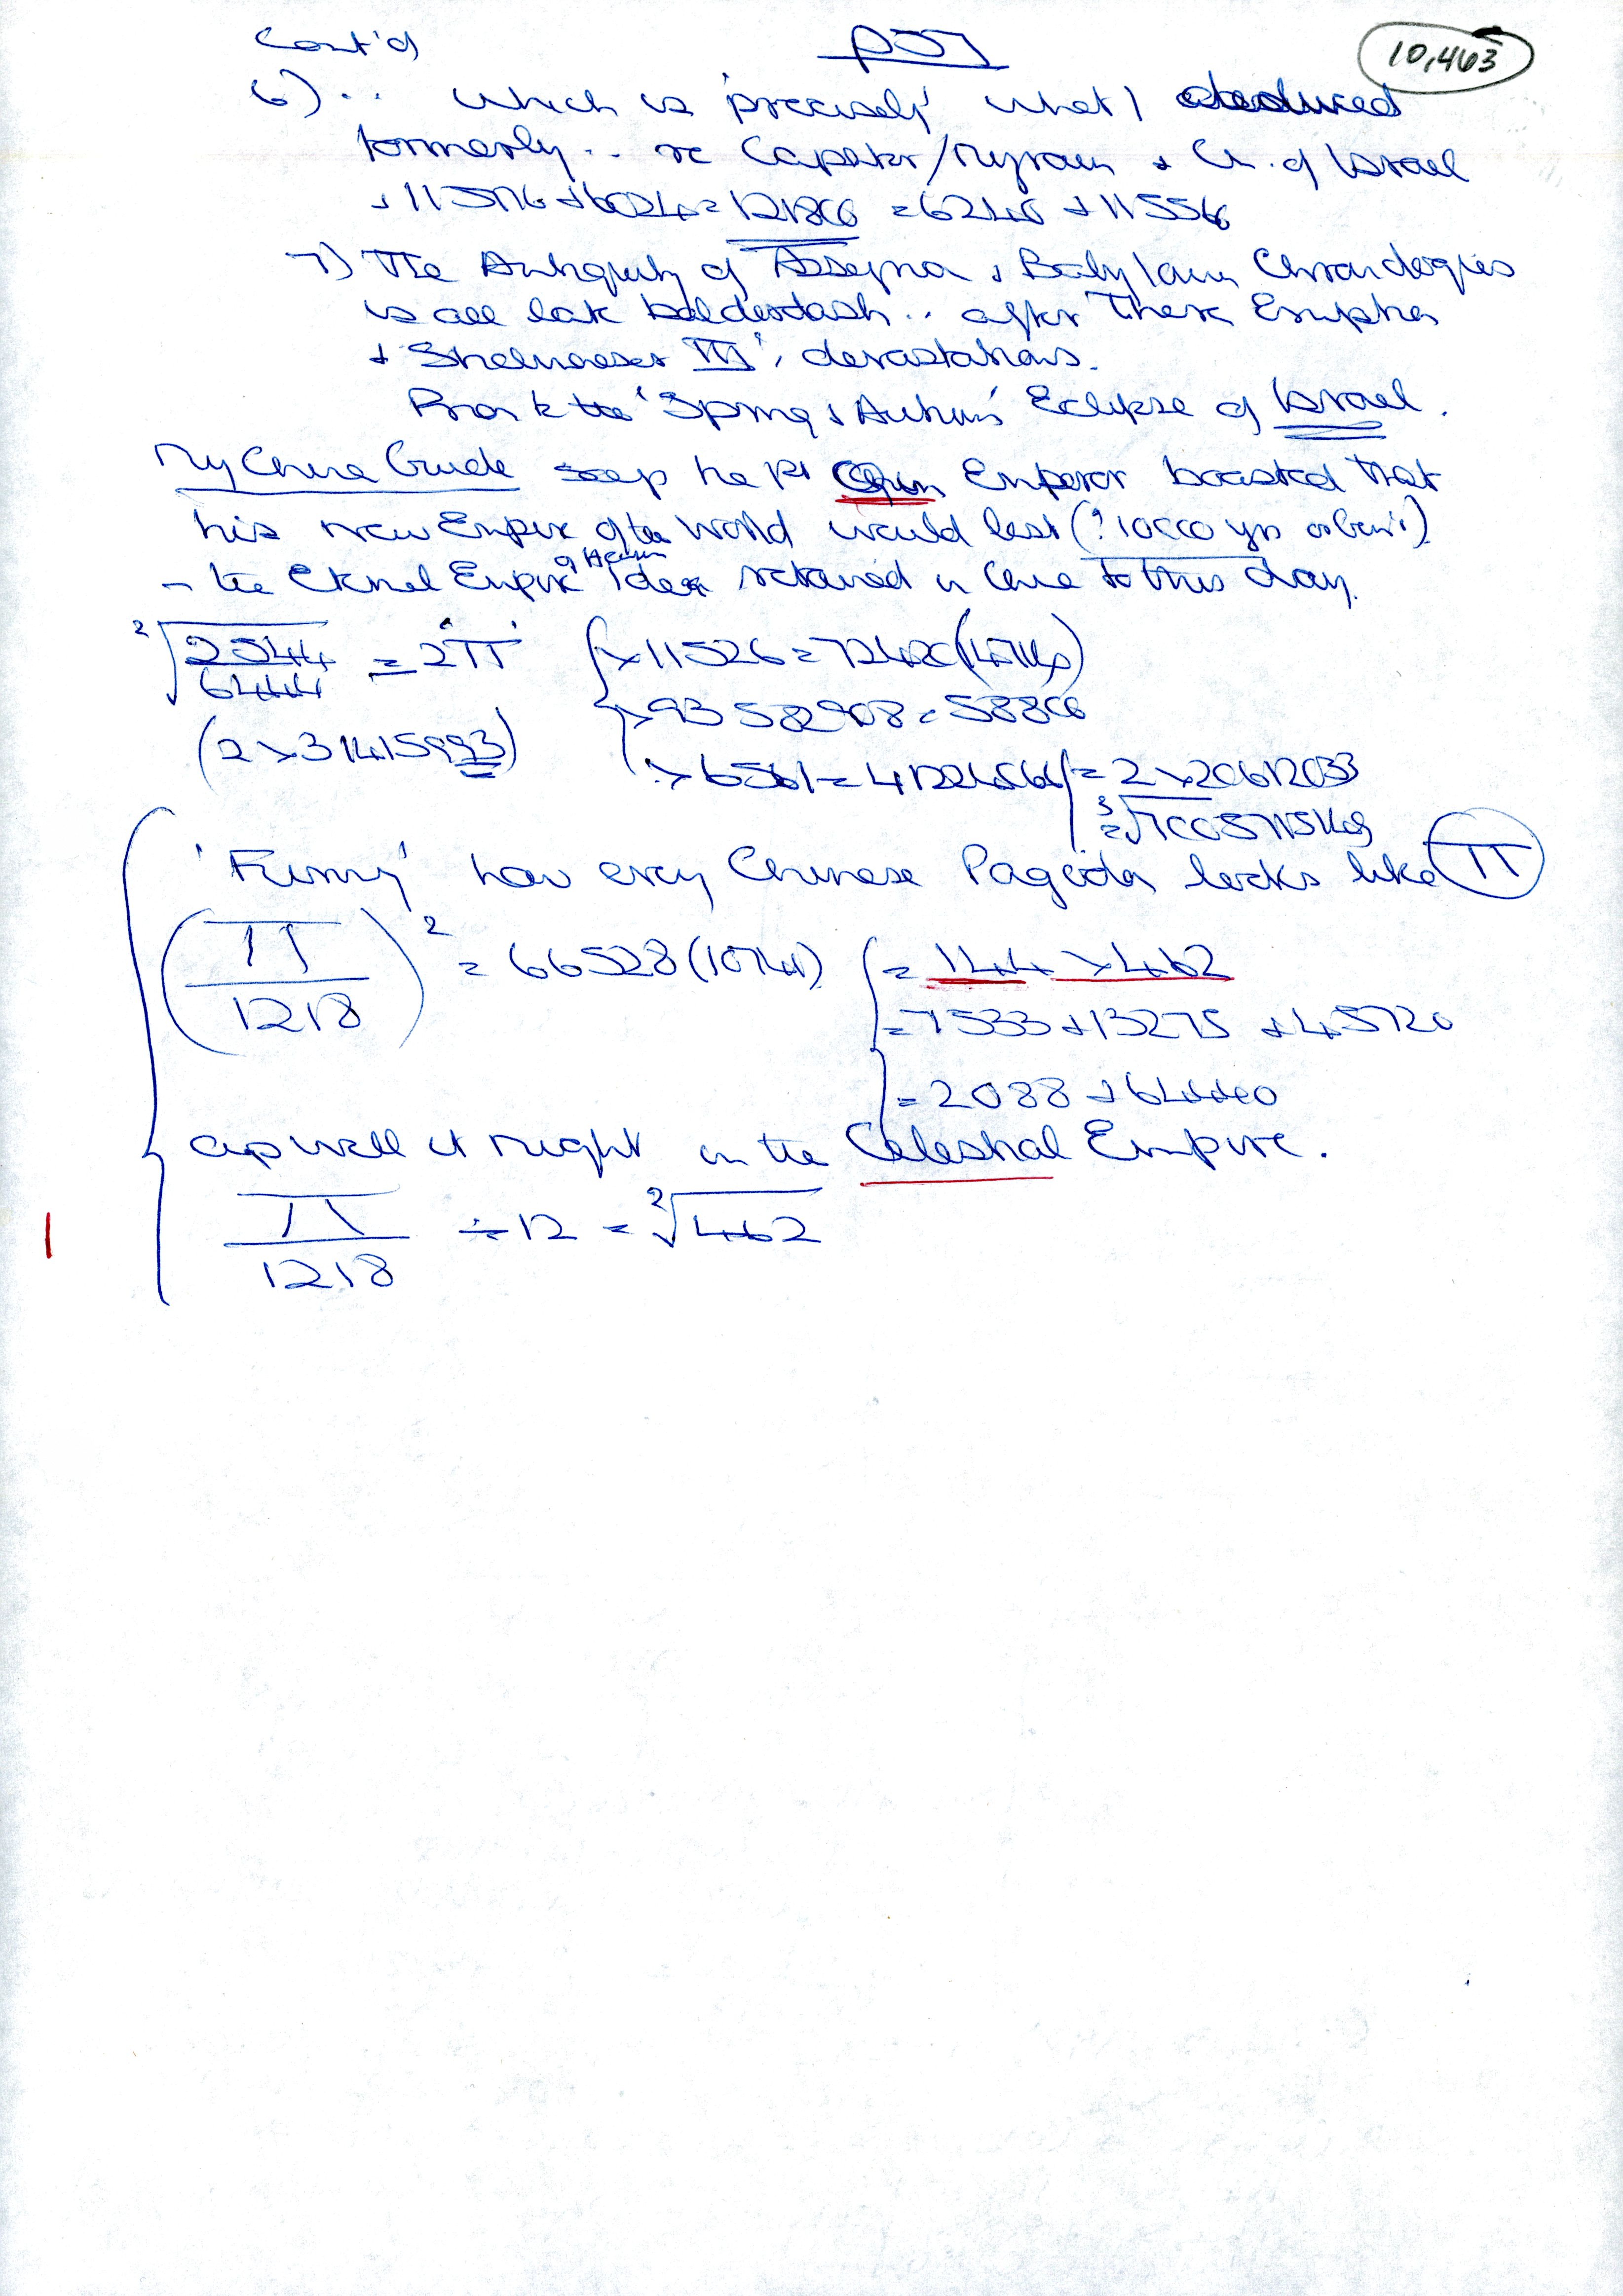 Cont'd
10,463
6) .. which is 'precisely' what I deduced
formerly .. re / + Ch. of Israel
+ 115776 + 6024 = 121800 = 6240 + 115556
7) The Antiquity of Assyria & Babylonian Chronologies
is all late balderdash .. after These Empires
+ Shalmaneser III's devastations.
Prior to the 'Spring & Autumn' Eclipse of Israel.
My China Guide says the 1st Qin Emperor boasted that
his new Empire of the World would last (? 10000 yrs )
of Heaven
- the Eternal Empire Idea retained in China to this day.
²√2544/6444 = 2'π'
(2 × 31415993)
× 11526 = 72420
× 93582908 = 58800
× 6561 = = 2 × 20612033
= ³√
'Funny' how every Chinese Pagoda looks like π
(π/1218)² = 66528 (10741)
= 144 × 462
= 7533 + 13275 + 45720
= 2088 + 64440
as well it might in the Celestial Empire.
π/1218 ÷ 12 = ²√462